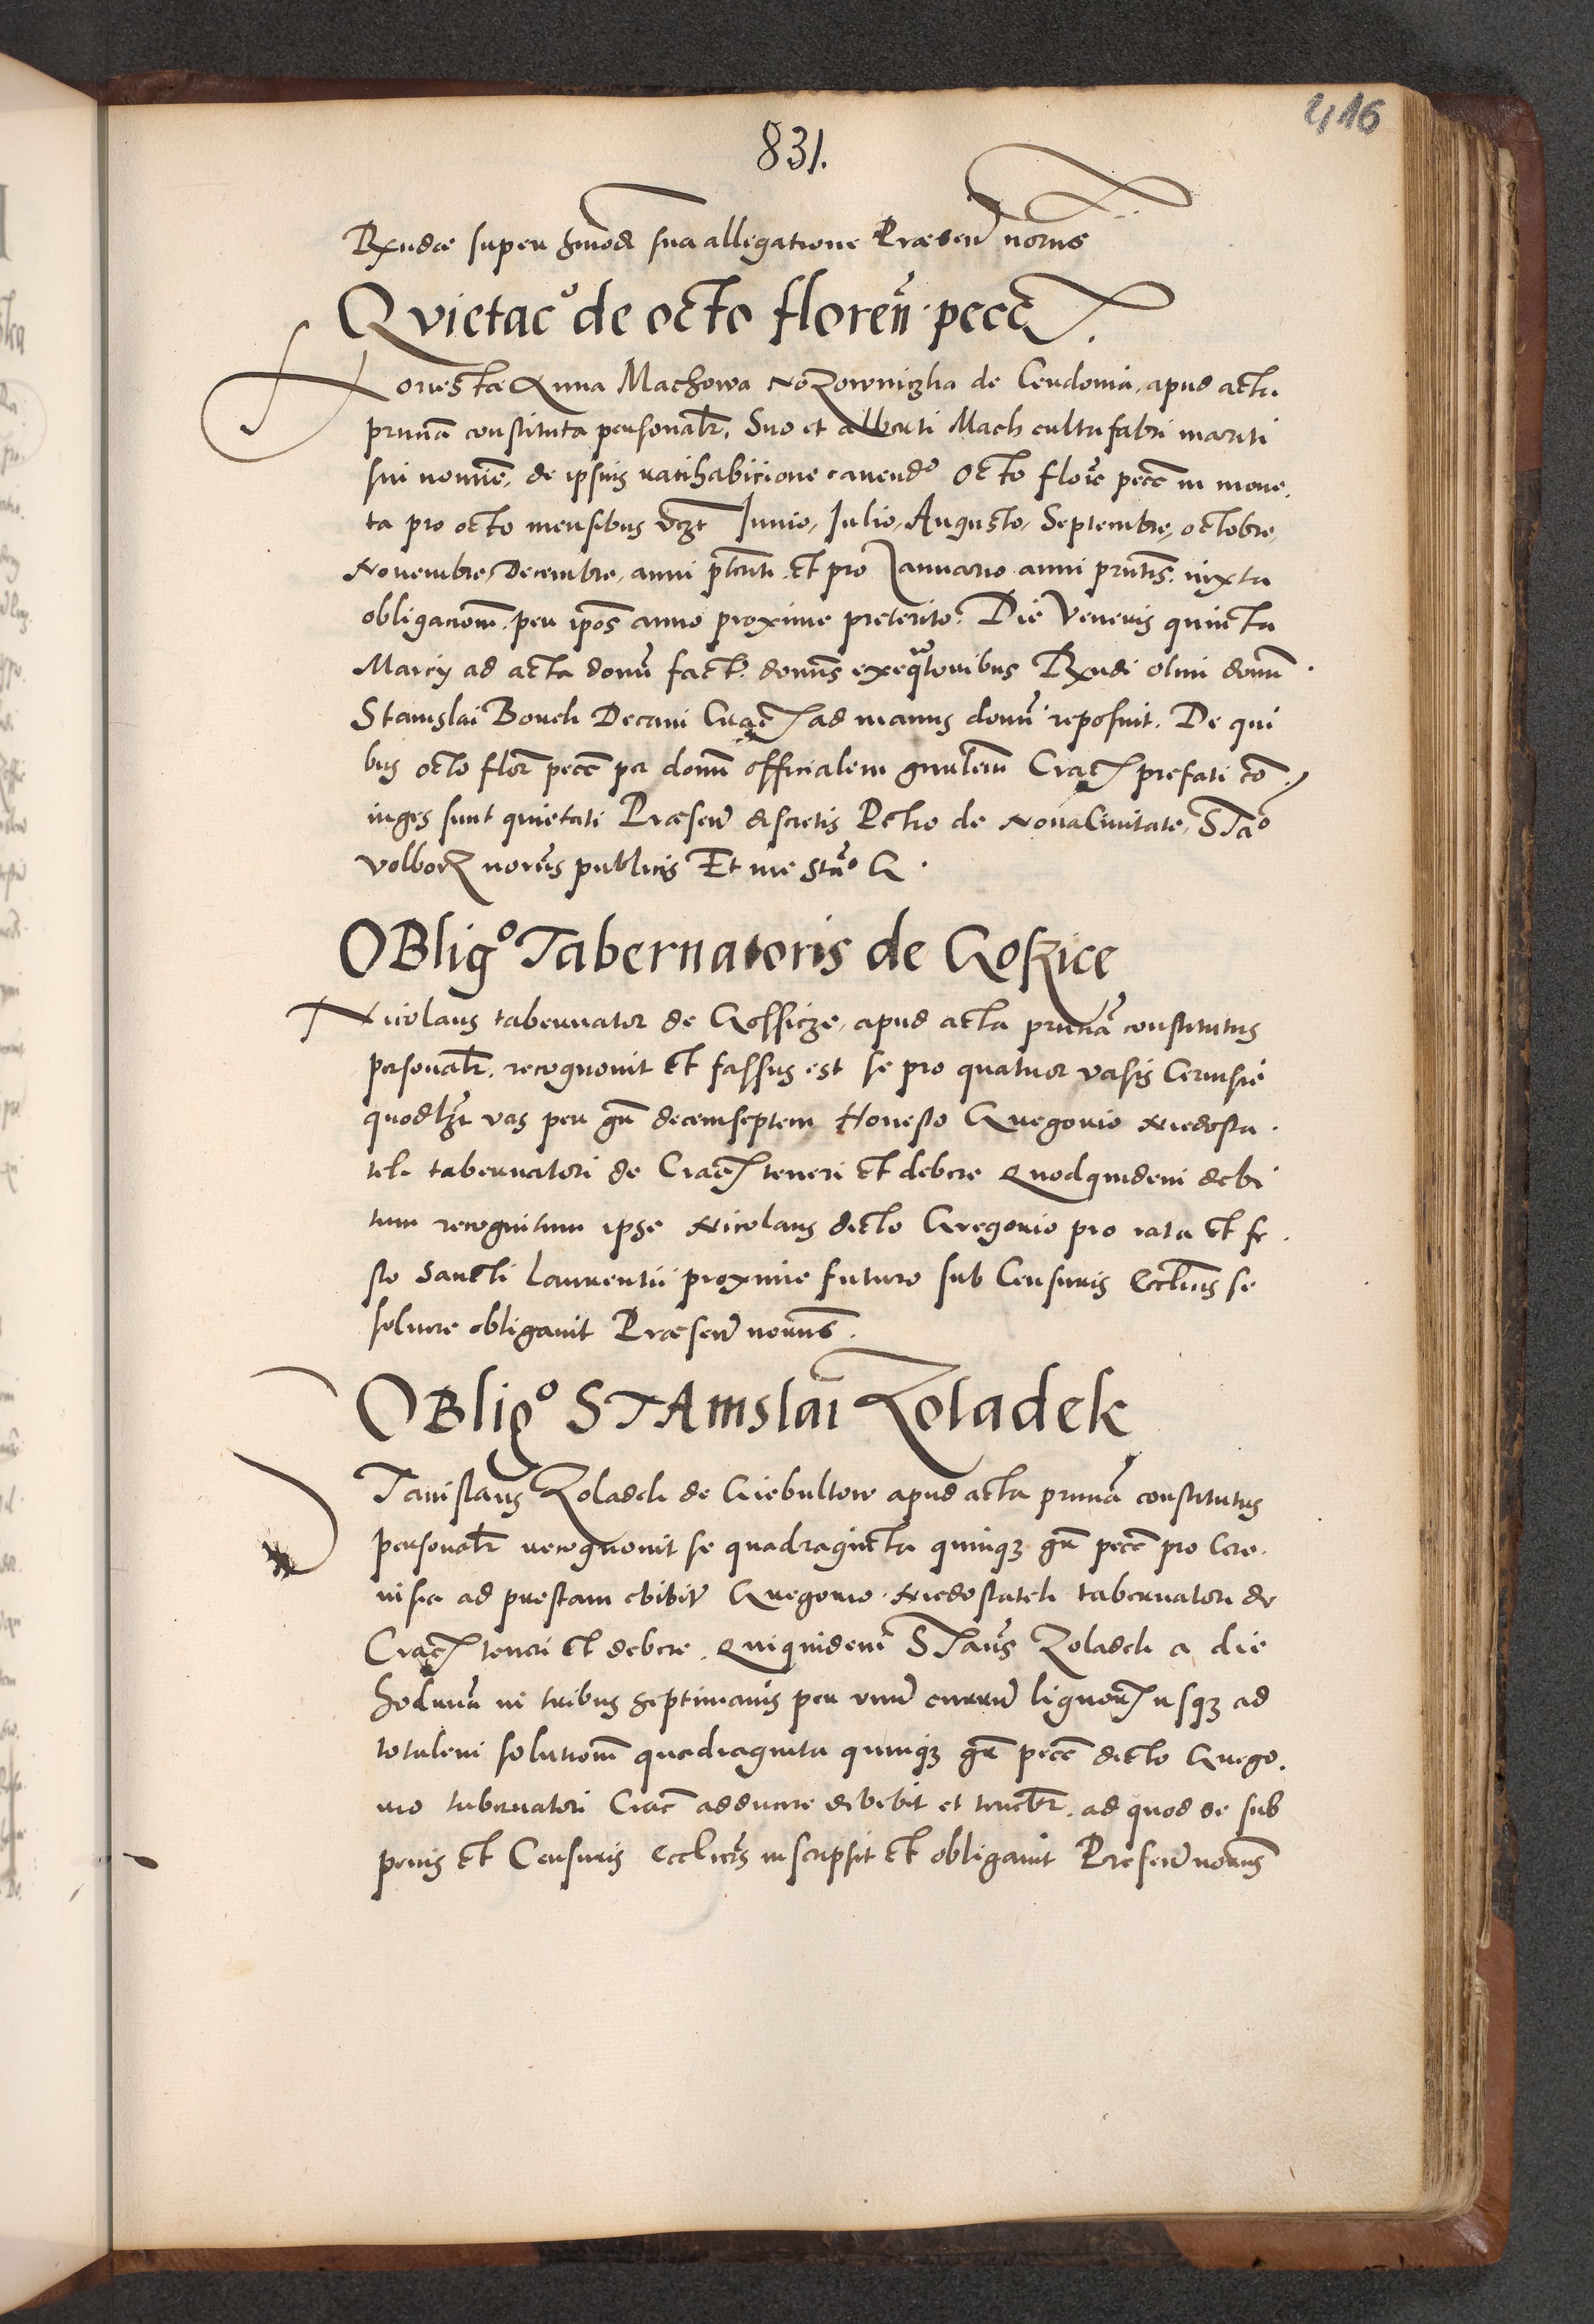 416
831.
Rxndæ super hmodi sua allegatione Præsen notus
Qvietac° de octo floreñ pecc
Honesta Anna Machowa Nozownigka de Clepardia, apud acta
pruīā constituta personalr, Suo et Alberti Mach cultrifabri mariti
sui nomīe, de ipsius ratihabicione cavend° Octo florē pecc in mone
ta pro octo mensibus vczt Junio, Julio, Augusto, Septembre, octobre,
Novembre, Decembre, anni ptriti et pro Januario anni prntis, iuxta
obligationē per ipōs anno proxime preterito. Die Veneris quincta
Marcij ad acta donū fact. domīs exequtoribus Rxndi olim domī
Stanislai Borch Decani Crac ad manus donū reposuit. De qui
bus octo florē pecc per donū officialem gnralem Crac prefati cō
iuges sunt quietati Præsen discretis Petro de Nova Civitate, STa°
Volborz notrijs publicis Et me Stā° G.
OBlig° Tabernatoris de Goszice
Nicolaus tabernator de Gossicze, apud acta pruīā constitutus
personalr, recognovit et fassus est se pro quatuor vasis Cervisie
quodlzt vas per gr decemseptem Honesto Gregorio Niedosta
tek tabernatori de Crac teneri et debere Quodquidem debi
tum recognitum ipse Nicolaus dicto Gregorio pro rata et fe
sto Sancti Laurentii proxime futuro sub Censuris Ecclicis se
solvere obligavit Præsen notrijs.
OBlig° STAnislai Zoladek
Stanislaus Zoladek de Giebultow apud acta pruīā constitutus
personalr recognovit se quadragincta quinq3 gr pecc pro Cere
visia ad prestam ebibit Gregorio Niedostatek tabernatori de
Crac teneri et debere. Quiquidem STaus Zoladek a die
hodierna in tribus septimanis per unū currū lignor usq3 ad
totalem solutionē quadraginta quinq3 gr pecc dicto Grego
rio tabernatori Crac adducere debebit et tenebr. ad quod se sub
penis et Censuris Ecclicis inscripsit et obligavit Præsen notrijs